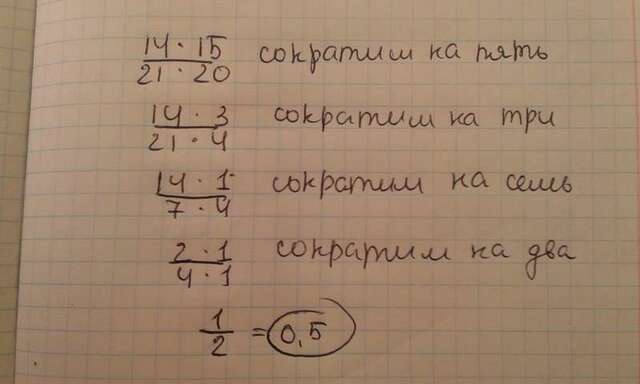 14 · 15 / 21 · 20 сократим на пять
14 · 3 / 21 · 4 сократим на три
14 · 1 / 7 · 4 сократим на семь
2 · 1 / 4 · 1 сократим на два
1 / 2 = 0,5